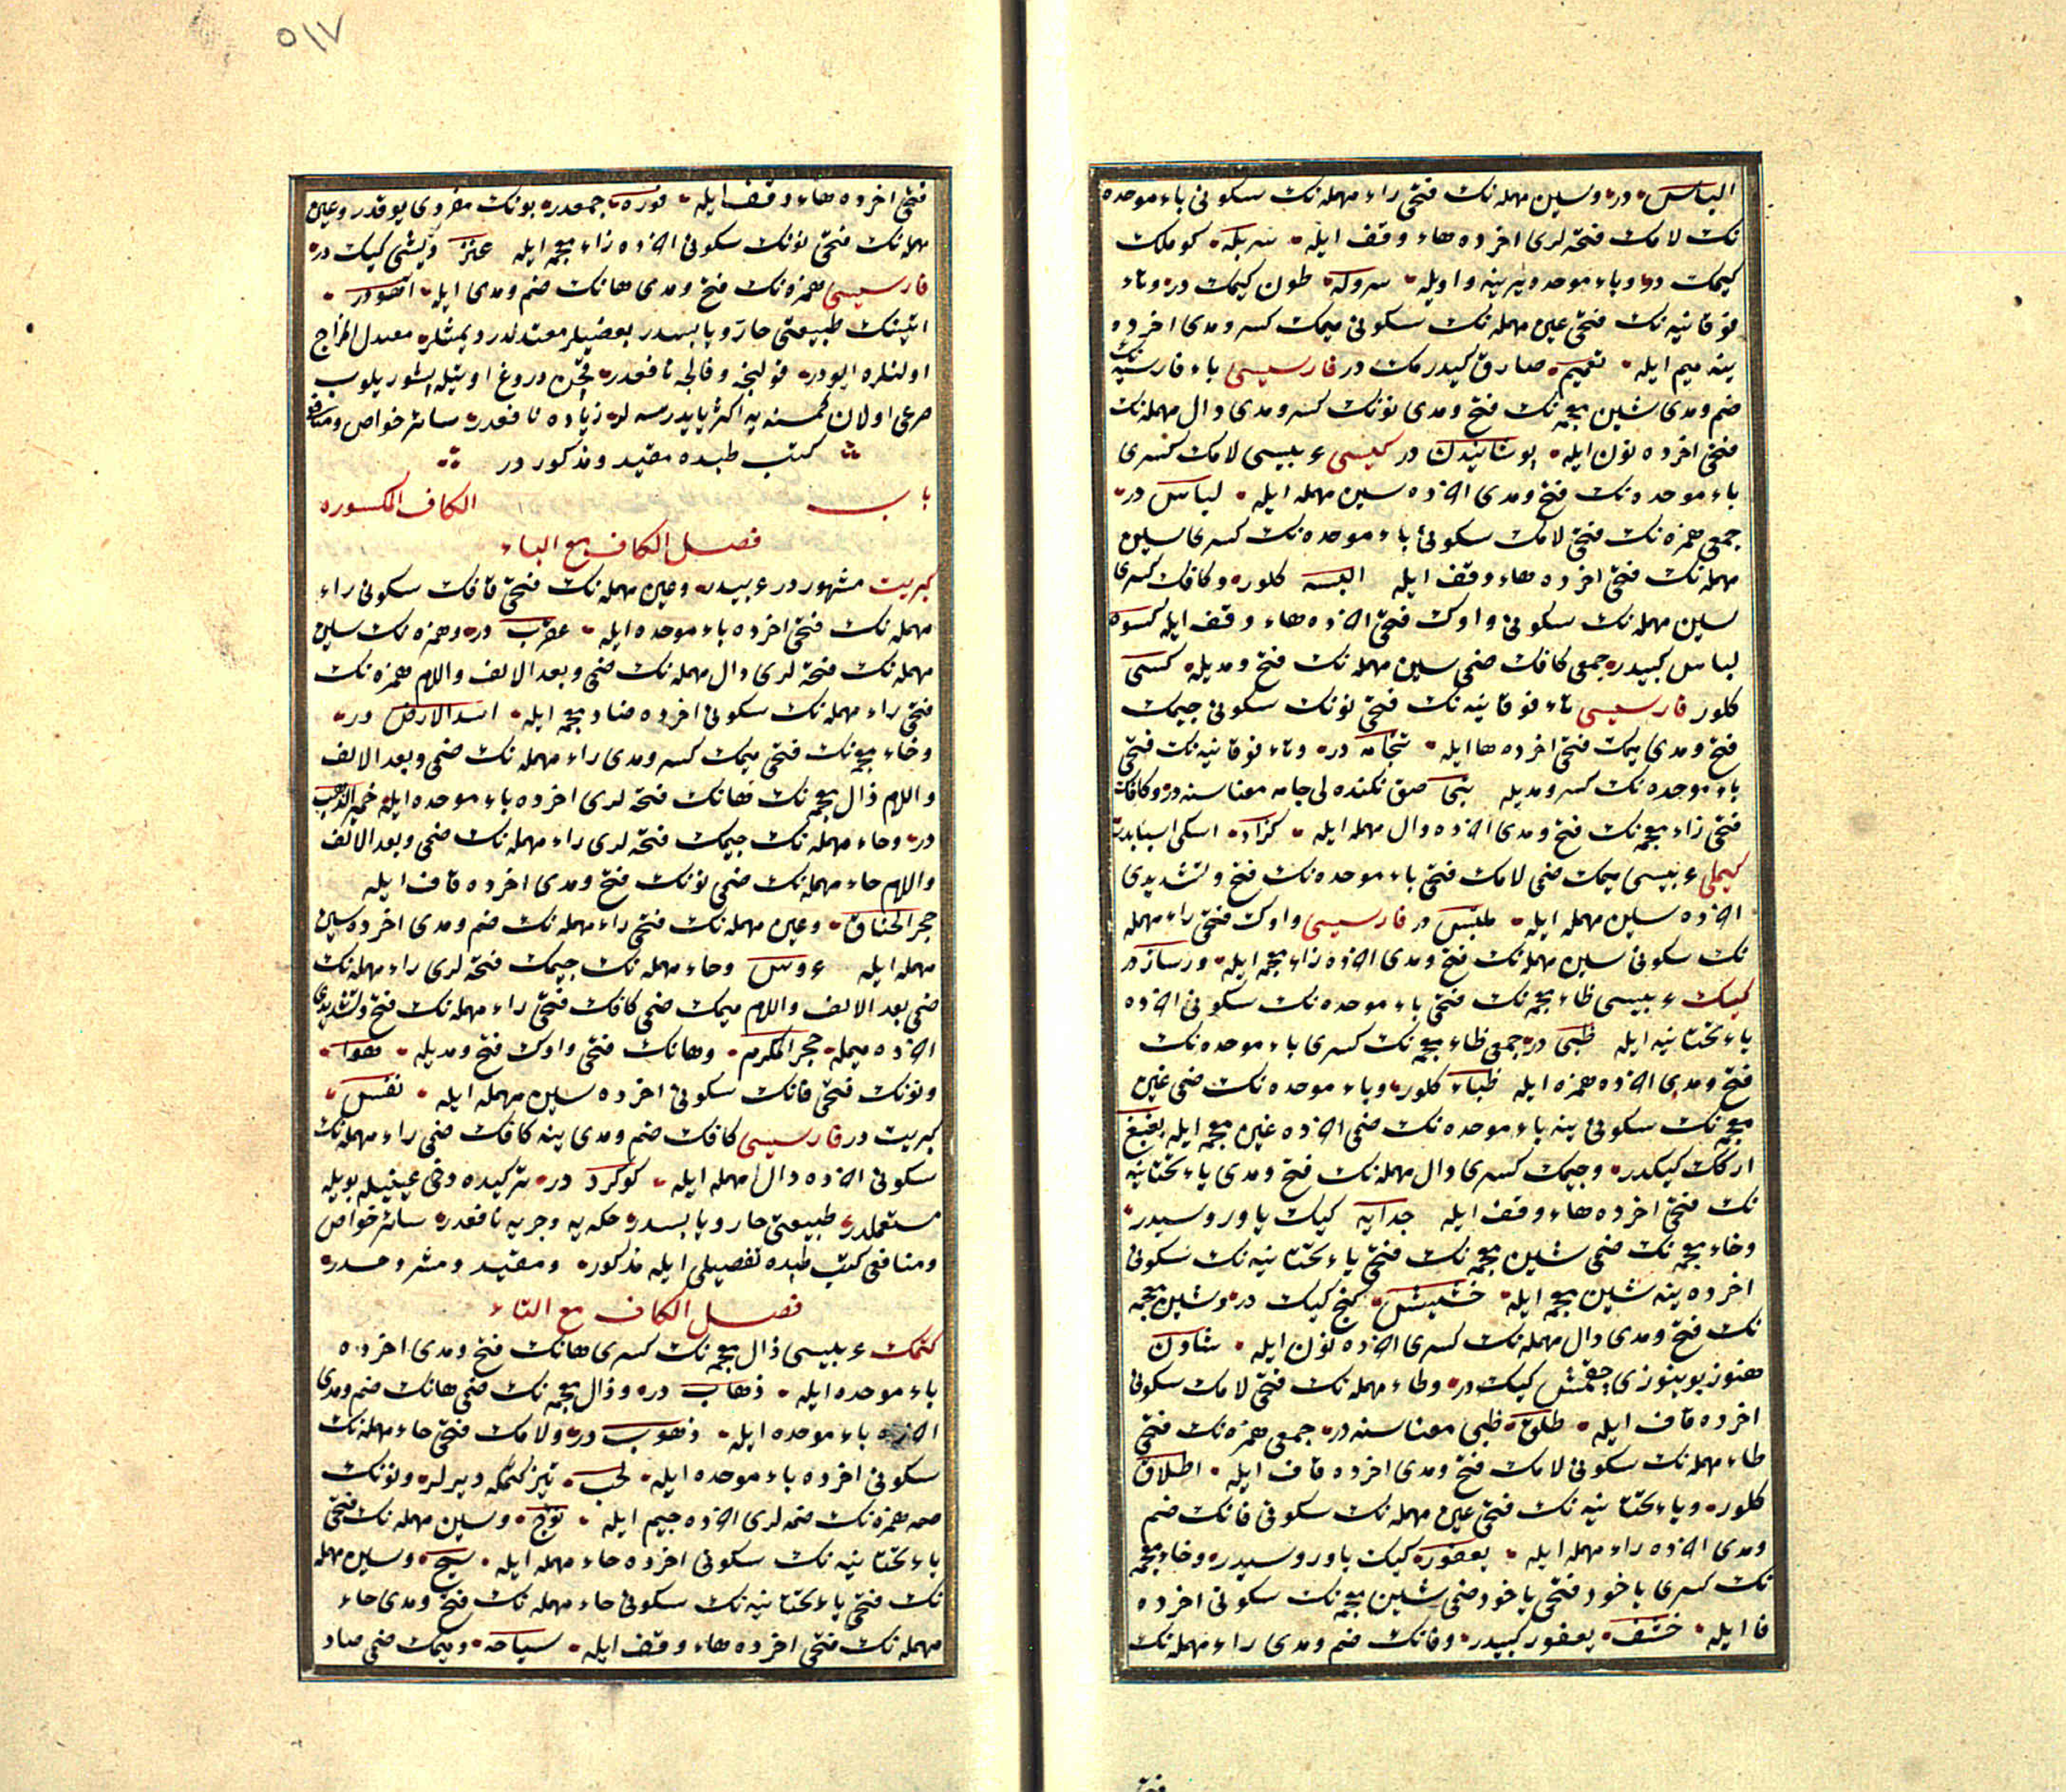 الباس در وسین مهمله نک فتحی راء مهمله نک سکونی باء موحده
نک لامک فتحه لری اخرده هاء وقف ایله سربله کوملک
کیمک در وباء موحده یرینه واویله سروله طون کیمک در وتاء
فوقانیه نک فتحی عین مهمله نک سکونی میمک کسر ومدی اخرده
ینه میم ایله تعمیم صارق کیدرمک در فارسیسی باء فارسیه نک
ضم ومدی شین معجمه نک فتح ومدی نونک کسر ومدی دال مهمله نک
فتحی اخرده نون ایله پوشانیدن در کیسی عربیسی لامک کسری
باء موحده نک فتح ومدی اخرده سین مهمله ایله لباس در
جمعی همزه نک فتحی لامک سکونی باء موحده نک کسری سین
مهمله نک فتحی اخرده هاء وقف ایله البسه کلور وکافک کسری
سین مهمله نک سکونی واوک فتحی اخرده هاء وقف ایله کسوه
لباس کبیدر جمعی کافک ضمی سین مهمله نک فتح ومدیله کسی
کلور فارسیسی تاء فوقانیه نک فتحی نونک سکونی جیمک
فتح ومدی میمک فتحی اخرده ها ایله تنجامه در وتاء فوقانیه نک فتحی
باء موحده نک کسر ومدیله تبی صق نکنده لی جامه معناسنه در وکافک
فتحی زاء معجمه نک فتح ومدی اخرده دال مهمله ایله کزاد اسکی اسبابدر
کیملی عربیسی میمک ضمی لامک فتحی باء موحده نک فتح وتشدیدی
اخرده سین مهمله ایله ملبس در فارسیسی واوک فتحی راء مهمله
نک سکونی سین مهمله نک فتح ومدی اخرده زاء معجمه ایله ورساز در
کیک عربیسی ظاء معجمه نک فتحی باء موحده نک سکونی اخرده
یاء تحتانیه ایله ظبی در جمعی ظاء معجمه نک کسری باء موحده نک
فتح ومدی اخرده همزه ایله ظباء کلور وباء موحده نک ضمی غین
معجمه نک سکونی ینه باء موحده نک ضمی اخرده غین معجمه ایله بغبغ
ارکک کیکدر وجیمک کسری دال مهمله نک فتح ومدی یاء تحتانیه
نک فتحی اخرده هاء وقف ایله جدایه کیک یاوروسیدر
وخاء معجمه نک ضمی شین معجمه نک فتحی یاء تحتانیه نک سکونی
اخرده ینه شین معجمه ایله خشیش کنج کیک در وشین معجمه
نک فتح ومدی دال مهمله نک کسری اخرده نون ایله شادن
هنوز بوینوزی چقمش کیک در وطاء مهمله نک فتحی لامک سکونی
اخرده قاف ایله طلق ظبی معناسنه در جمعی همزه نک فتحی
طاء مهمله نک سکونی لامک فتح ومدی اخرده قاف ایله اطلاق
کلور ویاء تحتانیه نک فتحی عین مهمله نک سکونی فانک ضم
ومدی اخرده راء مهمله ایله یعفور کیک یاوروسیدر وخاء معجمه
نک کسری یاخود فتحی یاخود ضمی شین معجمه نک سکونی اخرده
فا ایله خشف یعفور کبیدر وفانک ضم ومدی راء مهمله نک
٥١٧
فتحی اخرده هاء وقف ایله فوره جمعدر بونک مفردی یوقدر وعین
مهمله نک فتحی نونک سکونی اخرده زاء معجمه ایله عنز دیشی کیک در
فارسیسی همزه نک فتح ومدی هانک ضم ومدی ایله آهو در
اتینک طبیعتی حار ویابسدر بعضیلر معتدلدر دیمشلر معتدل المزاج
اولنلره ایودر قولنجه وفالجه نافعدر
صرعی اولان کمسنه یه زیاده نافعدر سائر خواص ومنافع
کتب طبده مقید ومذکور در
باب الکاف المکسوره
فصل الکاف مع الباء
کبریت مشهور در عربیدر وعین مهمله نک فتحی قافک سکونی راء
مهمله نک فتحی اخرده باء موحده ایله عقرب در وهمزه نک سین
مهمله نک فتحه لری دال مهمله نک ضمی وبعد الالف واللام همزه نک
فتحی راء مهمله نک سکونی اخرده ضاد معجمه ایله اسد الارض در
وخاء معجمه نک فتحی میمک کسر ومدی راء مهمله نک ضمی وبعد الالف
واللام ذال معجمه نک هانک فتحه لری اخرده باء موحده ایله خمیر الذهب
در وحاء مهمله نک جیمک فتحه لری راء مهمله نک ضمی وبعد الالف
واللام حاء مهمله نک ضمی نونک فتح ومدی اخرده قاف ایله
حجر الحناق وعین مهمله نک فتحی راء مهمله نک ضم ومدی اخرده سین
مهمله ایله عروس وحاء مهمله نک جیمک فتحه لری راء مهمله نک
ضمی بعد الالف واللام میمک ضمی کافک فتحی راء مهمله نک فتح وتشدیدی
اخرده میمله حجر المکرم وهانک فتحی واوک فتح ومدیله هوا
ونونک فتحی فانک سکونی اخرده سین مهمله ایله نفس
کبریت در فارسیسی کافک ضم ومدی ینه کافک ضمی راء مهمله نک
سکونی اخرده دال مهمله ایله کوکرد در ترکیده دخی عینیله بویله
مستعملدر طبیعتی حار ویابسدر حکه یه وجربه نافعدر سائر خواص
ومنافعی کتب طبده تفصیلی ایله مذکور ومقید ومشروحدر
فصل الکاف مع التاء
کتمک عربیسی ذال معجمه نک کسری هانک فتح ومدی اخرده
باء موحده ایله ذهاب در وذال معجمه نک ضمی هانک ضم ومدی
اخرده باء موحده ایله ذهوب در ولامک فتحی حاء مهمله نک
سکونی اخرده باء موحده ایله لحب تیز کتمکه دیرلر ونونک
همزه نک ضمه لری اخرده جیم ایله نؤج وسین مهمله نک فتحی
یاء تحتانیه نک سکونی اخرده حاء مهمله ایله سیح وسین مهمله
نک فتحی یاء تحتانیه نک سکونی حاء مهمله نک فتح ومدی حاء
مهمله نک فتحی اخرده هاء وقف ایله سیاحه ومیمک ضمی صاد